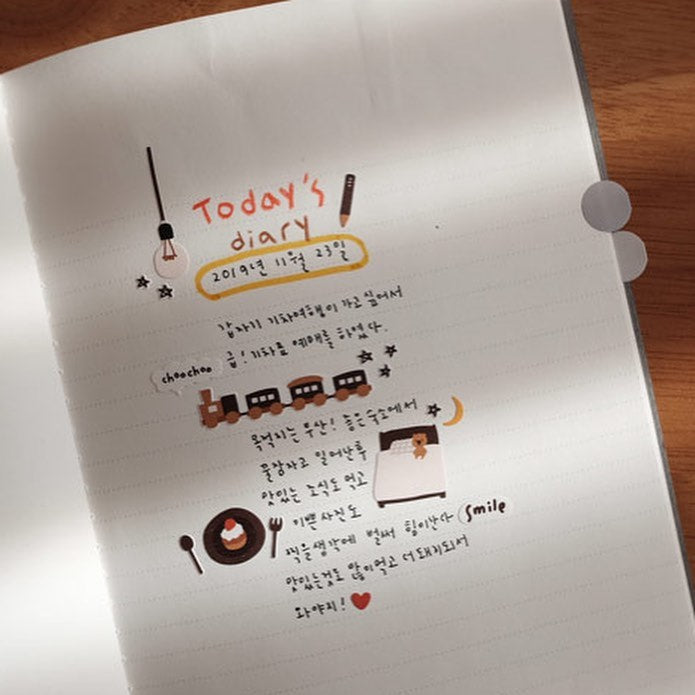 Today's
diary
2019년 11월 23일
갑자기 기차여행이 가고 싶어서
급! 기차표 예매를 하였다.
choochoo
목적지는 부산! 좋은숙소에서
꿀잠자고 일어난후
맛있는 조식도 먹고
이쁜 사진도
찍을생각에 벌써 힘이난다 smile
맛있는것도 많이먹고 더 돼지되서
와야지!